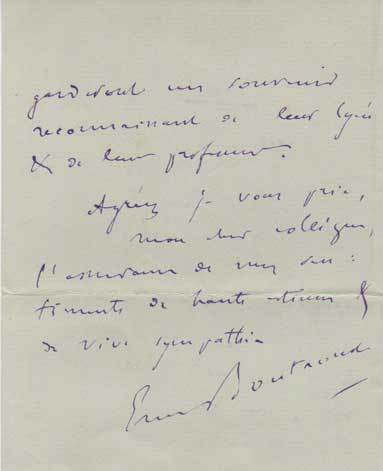 garderont un souvenir
reconnaissant de leur lycée
& de leur professeur.
Agréez je vous prie,
mon cher collègue,
l'assurance de mes sen:
timents de haute estime &
de vive sympathie
Em Boutroux